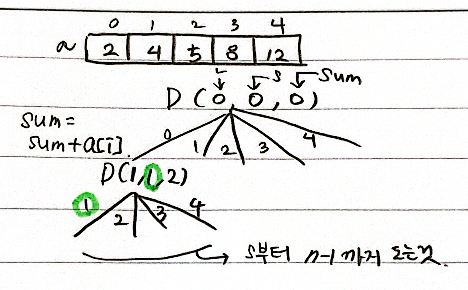 0 1 2 3 4
a 2 4 5 8 12
L S Sum
D(0, 0, 0)
sum=
sum+a[i].
0 1 2 3 4
D(1,1,2)
1 2 3 4
s부터 n-1까지 도는것.